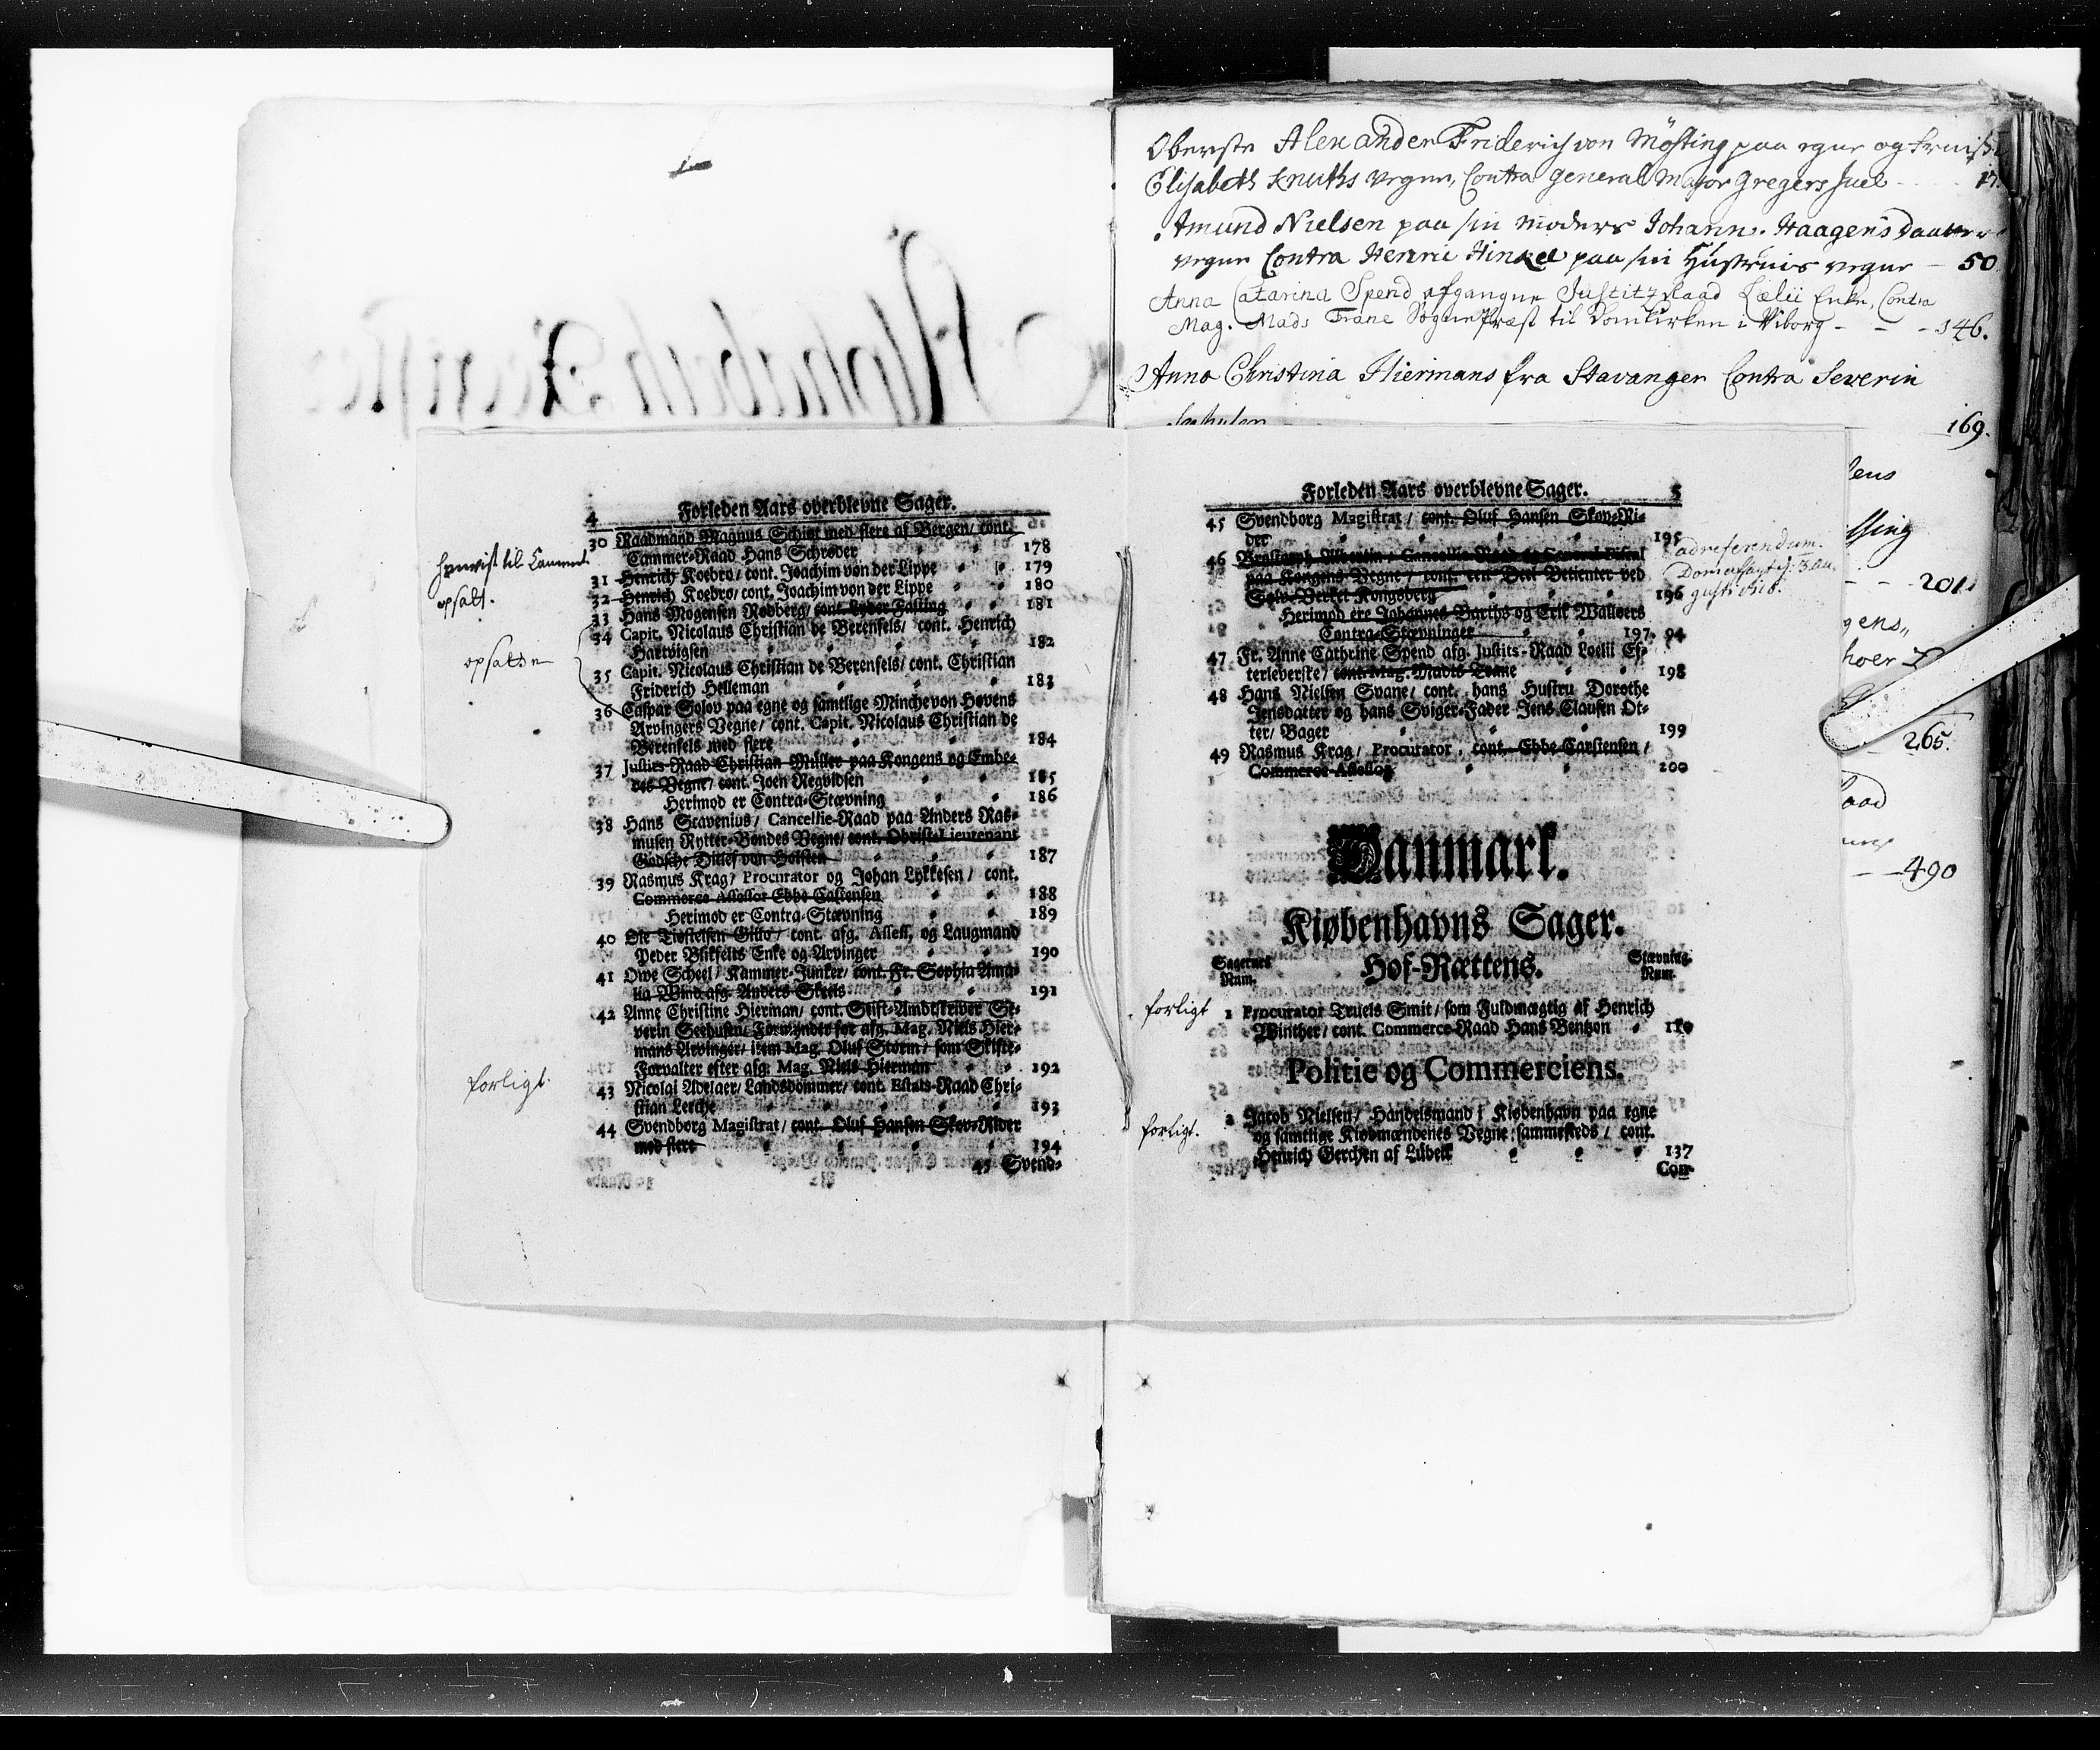 Oberste Alexander Friderich von Møsting paa egne og Fruis
Elisabeth Knuths vegne, Contra general Major Gregers Juel - - 17.
Amund Nielsen paa sin Moders Johann. Haagensdaatter
vegne Contra Henric Hinkel paa sin Hustruis vegne - 50
Anna Catarina Spend afgangne Justitz Raad Lælii Enke, Contra
Mag. Mads Trane Sogne Præst til Domkirken i Viborg - - - 146.
Anna Christina Hiermans fra Stavanger Contra Severin
Seehusen
169.
lens
201.
gens,,
265.
aad
- - 490
4 Forleden Aars overblevne Sager.
30 Raadmand Magnus Schiøt med flere af Bergen/ cont.
Cammer-Raad Hans Schrøder 178
31 Henrich Koebro/ cont. Joachim von der Lippe 179
opsatt.
32 Henrich Koebro/ cont. Joachim von der Lippe 180
33 Hans Mogensen Rødberg/ cont. Lyder Fasting 181
34 Capit. Nicolaus Christian de Berensels/ cont. Henrich
Hartvigsen 182
opsatte
35 Capit. Nicolaus Christian de Berensels/ cont. Christian
Friderich Helleman 183
36 Caspar Solov paa egne og samtlige Minche von Høvens
Arvingers Vegne/ cont. Capit. Nicolaus Christian de
Berensels med flere 184
37 Justits-Raad Christian Müller paa Kongens og Embe-
des Vegne/ cont. Joen Regvidsen 185
Herimod er Contra-Stævning 186
38 Hans Stavenius/ Cancellie-Raad paa Anders Ras-
musen Rytter-Bondes Vegne/ cont. Obrist-Lieutenant
Godsche Ditlef von Holsten 187
39 Rasmus Krag/ Procurator og Johan Lykkesen/ cont.
Commerce-Assessor Ebbe Castensen 188
Herimod er Contra-Stævning 189
40 Ole Tiøstelsen Gitto/ cont. afg. Assess. og Laugmand
Peder Blikfelts Enke og Arvinger 190
41 Owe Scheel/ Kammer-Junker/ cont. Fr. Sophia Ama-
lia Wind afg. Anders Skeels 191
42 Anne Christine Hierman/ cont. Stift-Amdtskriver Se-
verin Seehusen/ Formynder for afg. Mag. Niels Hier-
mans Arvinger/ item Mag. Oluf Storm/ som Skifte-
Forvalter efter afg. Mag. Niels Hierman 192
forligt.
43 Nicolai Adelaer/ Landsdommer/ cont. Estats-Raad Chri-
stian Lerche 193
44 Svendborg Magistrat/ cont. Oluf Hansen Skov-Rider
med flere 194
45 Svend-
Forleden Aars overblevne Sager. 5
45 Svendborg Magistrat/ cont. Oluf Hansen Skov-Ri-
der 195
ad referendum.
46 paa Kongens Vegne/ cont. een Deel Betienter ved
Sølv-Verket Kongsberg 196
Herimod ere Johannes Barths og Erik Walloers
Contra-Stævninger 197. 94
47 Fr. Anne Cathrine Spend afg. Justits-Raad Loelii Ef-
terleverske/ cont. Mag. Madts Trane 198
48 Hans Nielsen Svane/ cont. hans Hustru Dorothe
Jensdatter og hans Sviger-Fader Jens Clausen Ot-
ter/ Bager 199
49 Rasmus Krag/ Procurator, cont. Ebbe Carstensen/
Commerce-Assessor 200
Danmark.
Kiøbenhavns Sager.
Sagernes Num.
Hof-Rættens.
Stævning. Num.
forligt
1 Procurator Truels Smit/ som Fuldmægtig af Henrich
Winther/ cont. Commerce-Raad Hans Bentzon 110
Politie og Commerciens.
forligt.
2 Jacob Nielsen/ Handelsmand i Kiøbenhavn paa egne
og samtlige Kiøbmændenes Vegne sammesteds/ cont.
Henrich Gerchen af Lübek 137
Con-